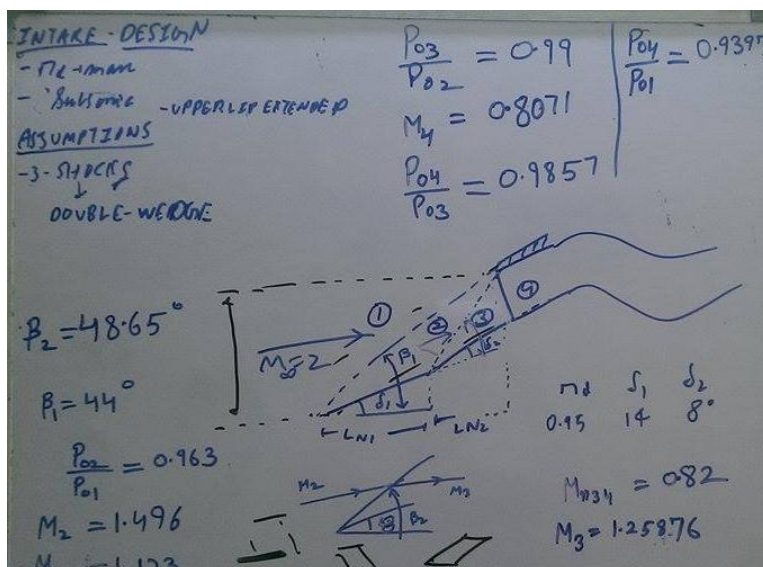 INTAKE - DESIGN
- Πd → max
- Subsonic - UPPERLIP EXTENDED
ASSUMPTIONS
- 3 - SHOCKS
DOUBLE - WEDGE
P03/P02 = 0.99
M4 = 0.8071
P04/P03 = 0.9857
P04/P01 = 0.9397
β2 = 48.65°
β1 = 44°
P02/P01 = 0.963
M2 = 1.496
① ② ③ ④
M∞ = 2
β1
δ1
δ2
LN1 LN2
M2 M3
β2
Πd δ1 δ2
0.95 14 8°
= 0.82
M3 = 1.25876